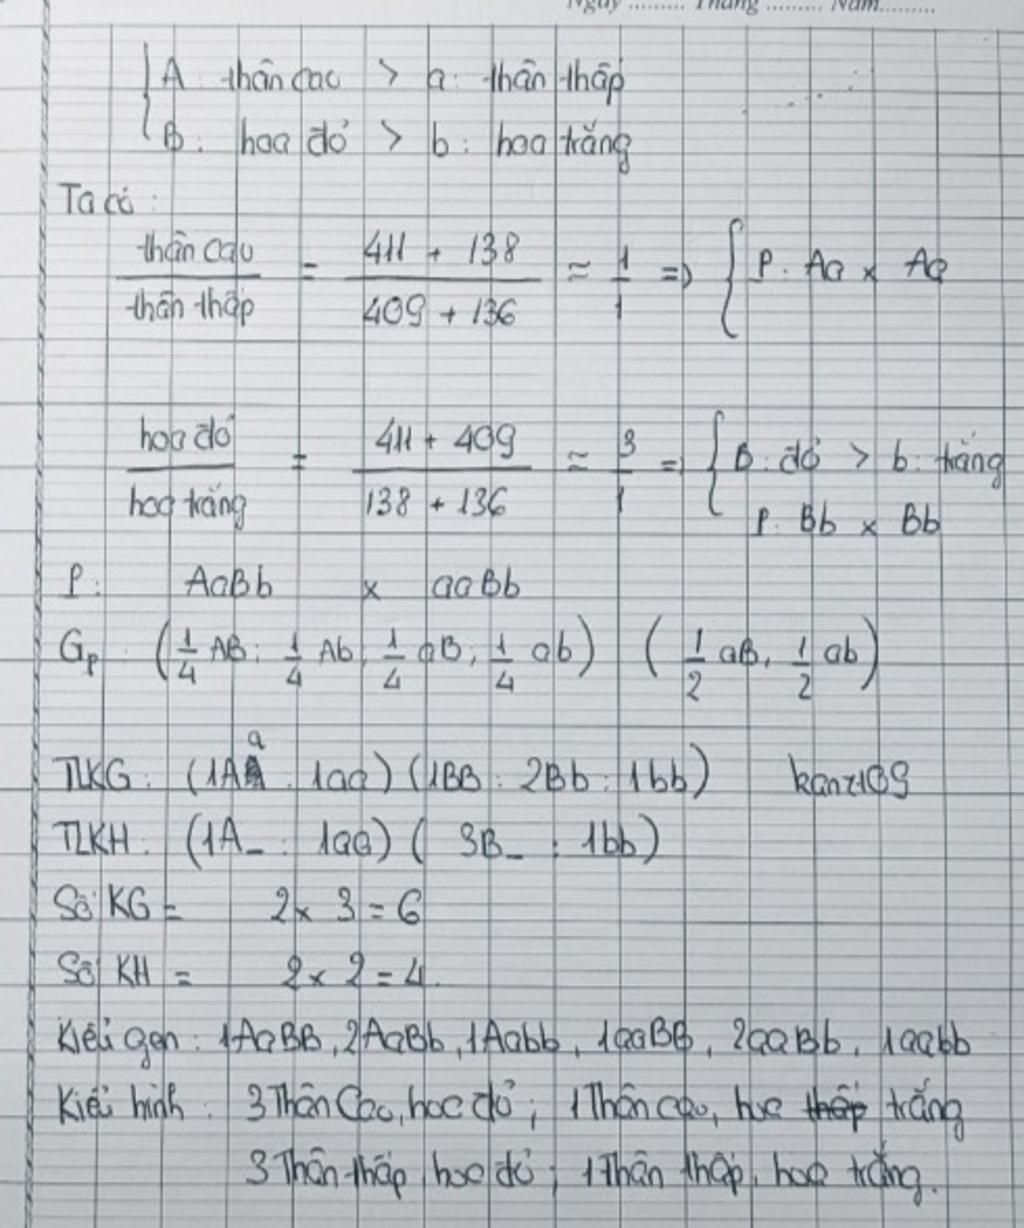 Ngày ......... Tháng ......... Năm.........
A: thân cao > a: thân thấp
B: hoa đỏ > b: hoa trắng
Ta có:
thân cao / thân thấp = 411 + 138 / 409 + 136 ≈ 1/1 => { P: Aa x Aa
hoa đỏ / hoa trắng = 411 + 409 / 138 + 136 ≈ 3/1 => { B: đỏ > b: trắng
P: Bb x Bb
P: AaBb x aaBb
Gp: (1/4 AB; 1/4 Ab, 1/4 aB; 1/4 ab) (1/2 aB, 1/2 ab)
TLKG: (1Aa : 1aa) (1BB : 2Bb : 1bb)
TLKH: (1A_ : 1aa) ( 3B_ : 1bb)
Số KG = 2 x 3 = 6
Số KH = 2 x 2 = 4.
Kiểu gen: 1AaBB, 2AaBb, 1Aabb, 1aaBB, 2aaBb, 1aabb
Kiểu hình: 3 Thân Cao, hoa đỏ; 1 Thân cao, hoa thấp trắng
3 Thân thấp, hoa đỏ; 1 Thân thấp, hoa trắng.